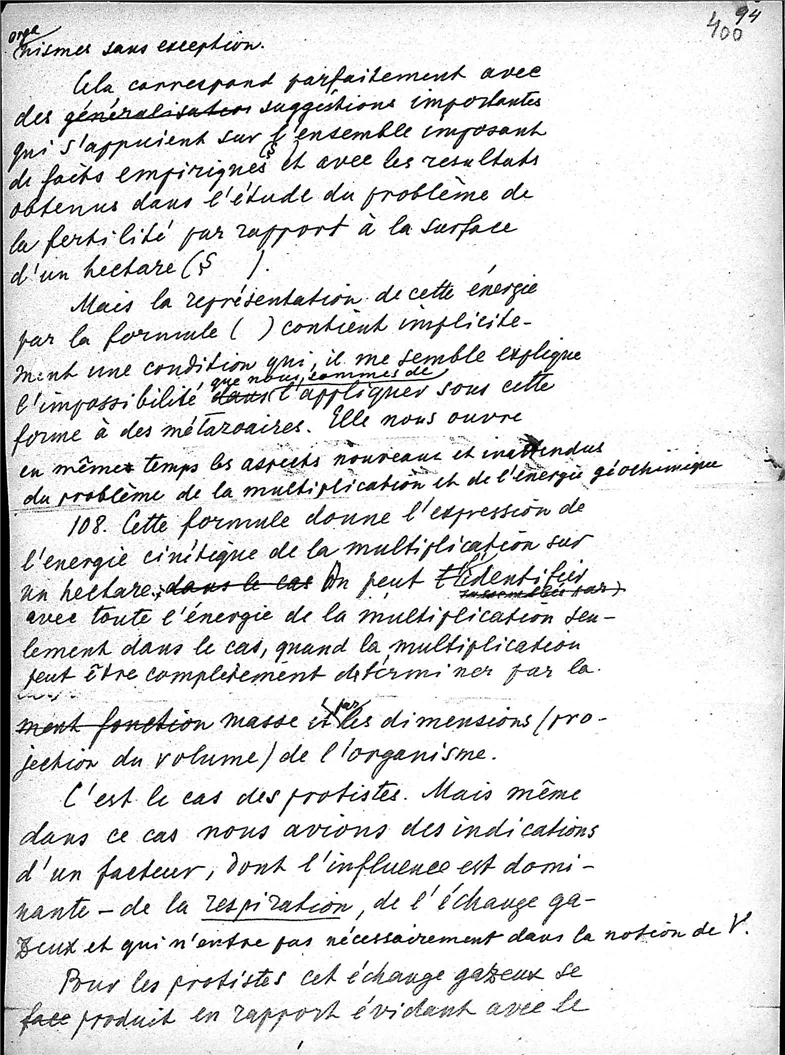 94
400
orga
nismes sans exception.
Cela correspond parfaitement avec
des généralisation suggestions importantes
qui s'appuient sur l'ensemble imposant
de faits empiriques et avec les resultats
obtenus dans l'étude du problème de
la fertilité par rapport à la surface
d'un hectare (§ ).
Mais la représentation de cette énergie
par la formule ( ) contient implicite-
ment une condition qui, il me semble explique
que nous sommes de
l'impossibilité dans l'appliquer sous cette
forme à des métazoaires. Elle nous ouvre
en même temps les aspects nouveaux et inattendus
du problème de la multiplication et de l'énergie géochimique
108. Cette formule donne l'expression de
l'energie cinétique de la multiplication sur
un hectare, dans le cas On peut l'identifier
avec toute l'énergie de la multiplication seu-
lement dans le cas, quand la multiplication
peut être complètement déterminer par la
ment fonction masse et par les dimensions (pro-
jection du volume) de l'organisme.
C'est le cas des protistes. Mais même
dans ce cas nous avions des indications
d'un facteur, dont l'influence est domi-
nante – de la respiration, de l'échange ga-
zeux et qui n'entre pas nécessairement dans la notion de V.
Pour les protistes cet échange gazeux se
face produit en rapport évidant avec le